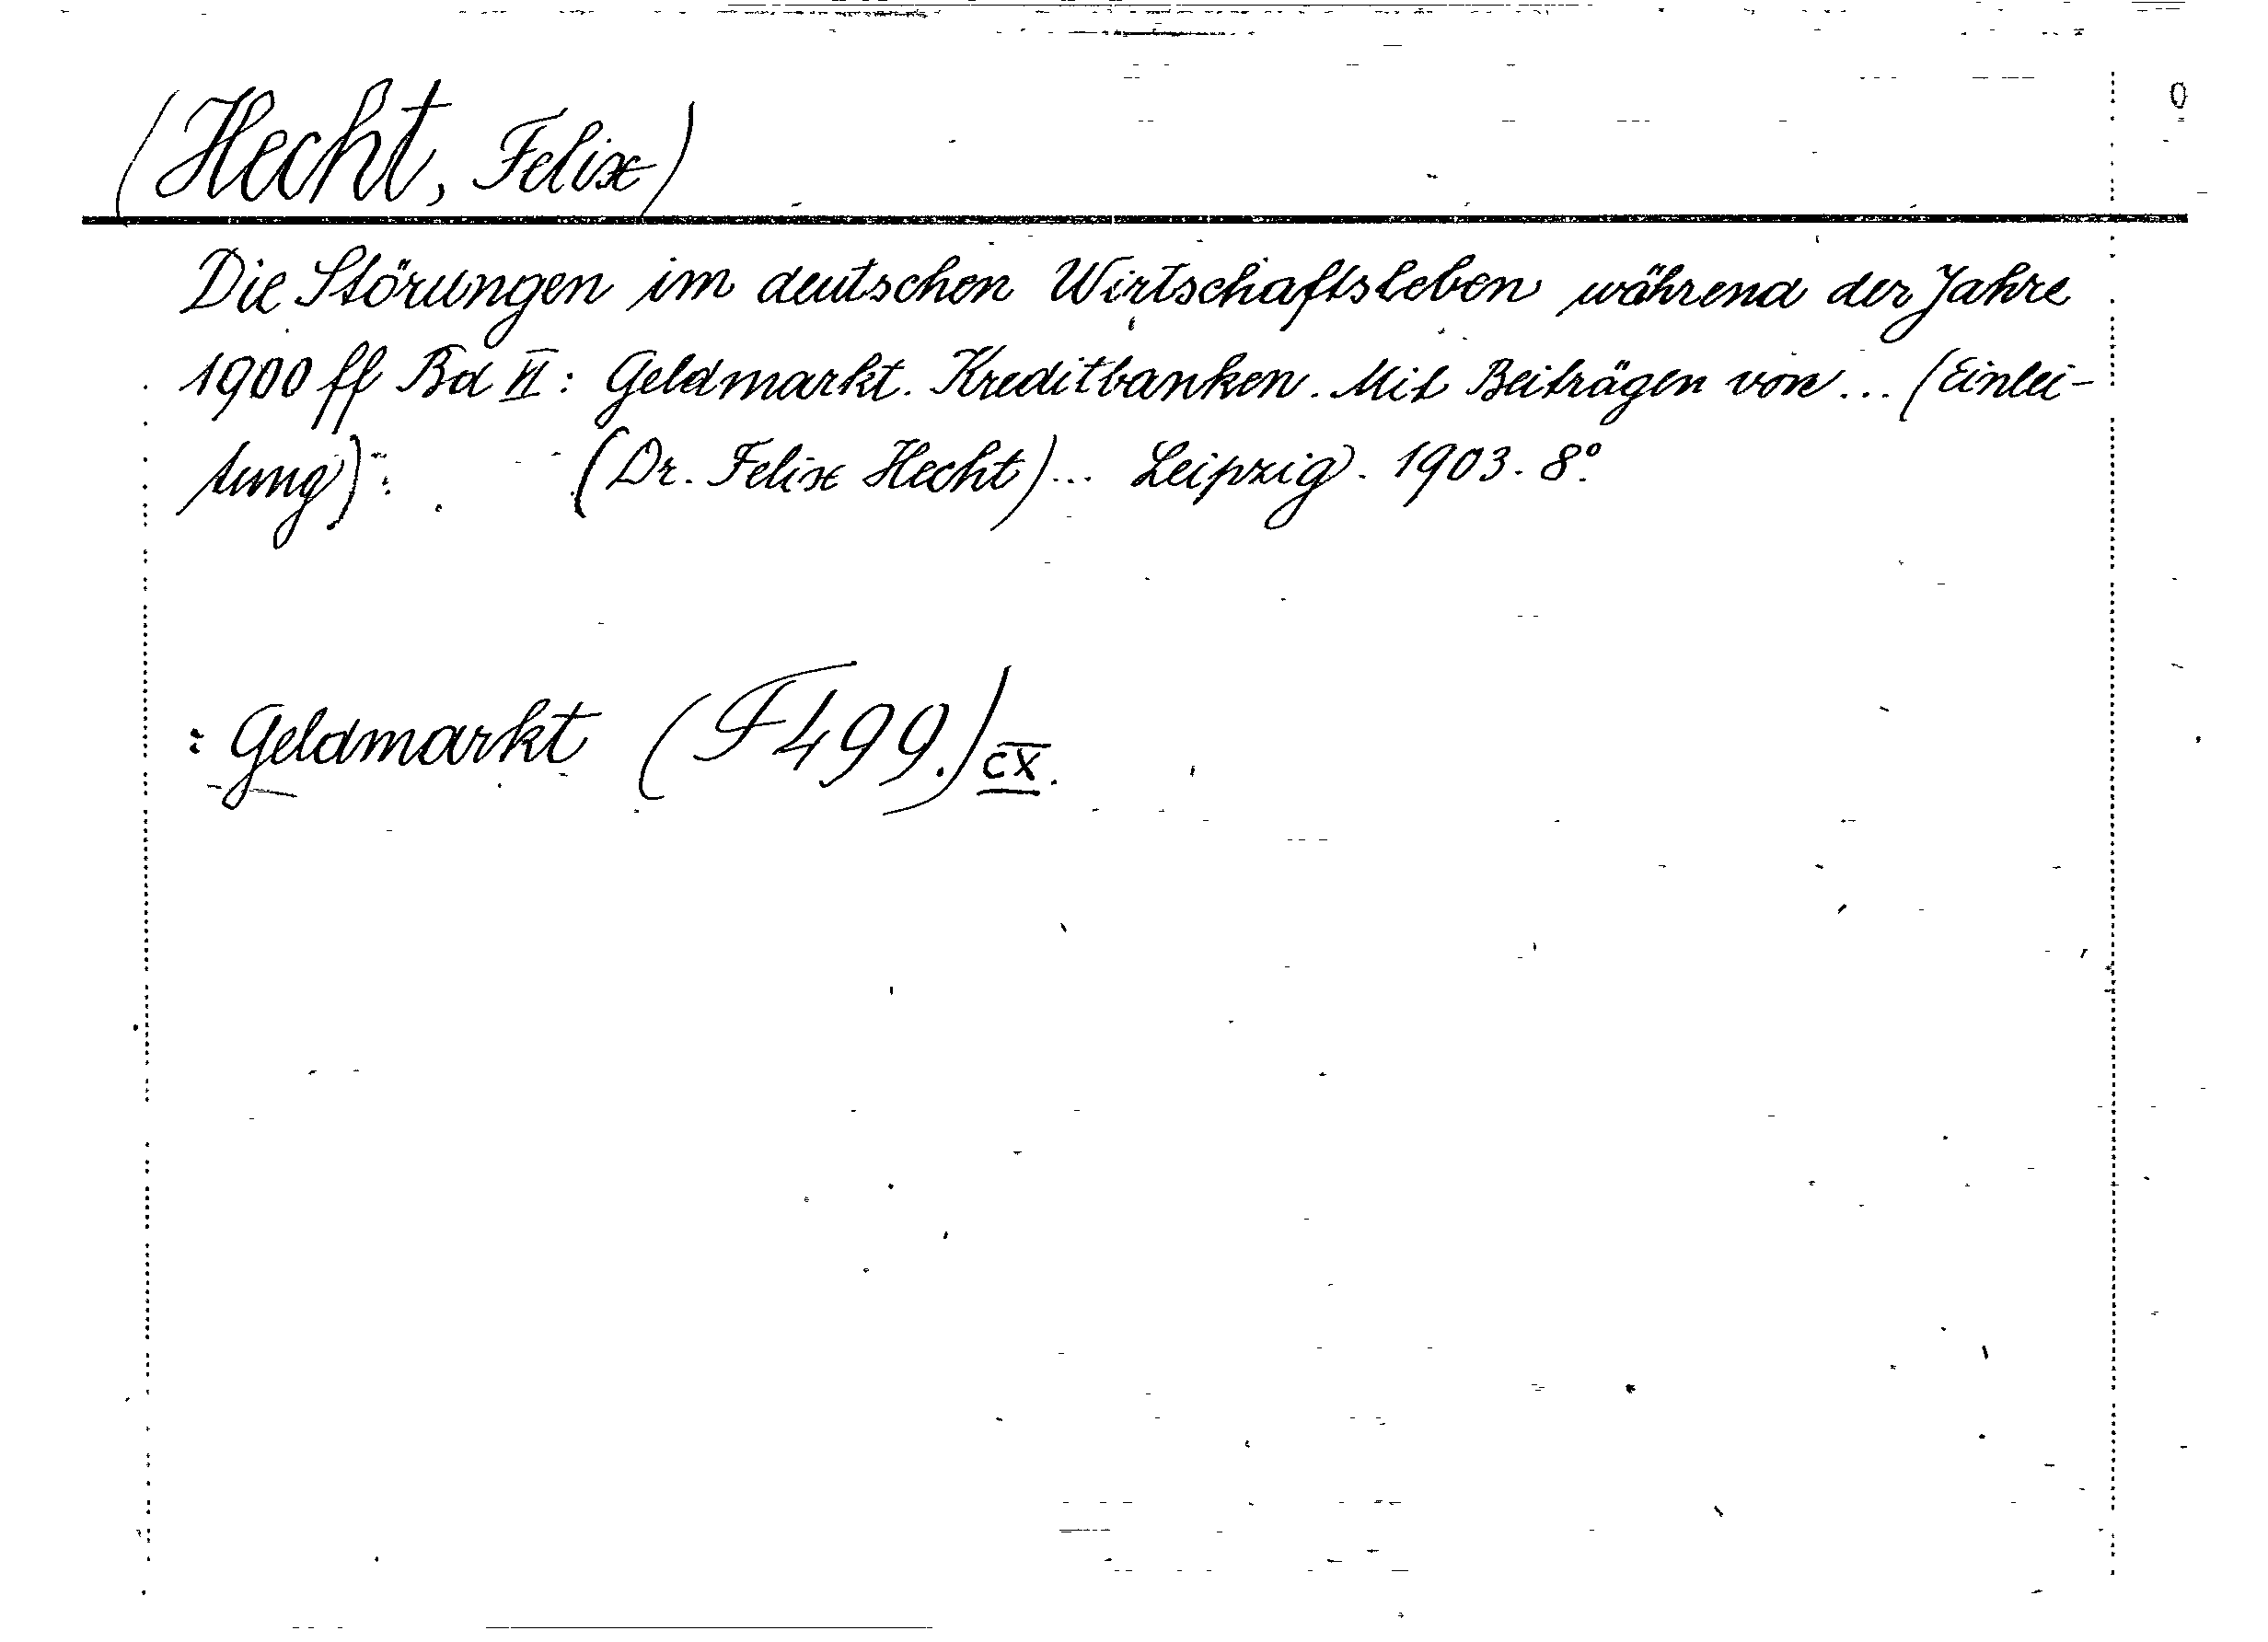 (Hecht, Felix)
Die Störungen im deutschen Wirtschaftsleben während der Jahre
1900 ff Bd VI: Geldmarkt. Kreditbanken. Mit Beiträgen von ... (Einlei-
tung): (Dr. Felix Hecht)... Leipzig. 1903. 8°.
: Geldmarkt (F499.) CX.